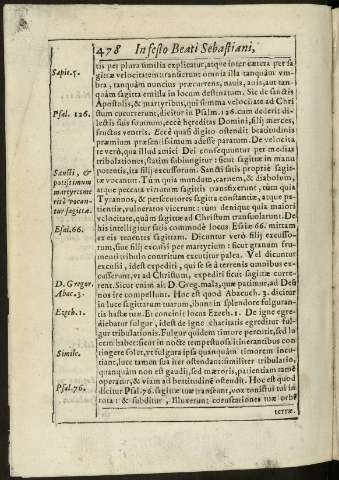 478 In festo Beati Sebastiani,
Sapie. 5.
tis per plura similia explicatur, atque inter cætera per sa
gittæ velocitatem: transierunt omnia illa tanquàm vm-
bra, tanquàm nuncius præcurrens, nauis, auis, aut tan
quàm sagitta emissa in locum destinatum. Sic de sanctis
Apostolis, & martyribus, qui summa velocitate ad Chri
Psal. 126.
stum cucurrerunt, dicitur in Psalm. 126. cum dederit di
lectis suis somnum, eccè hereditas Domini, filij merces,
fructus ventris. Eccè quasi digito ostendit beatitudinis
præmium præsentissimum adesse paratum. De velocita
te verò, qua illud amici Dei consequuntur per medias
tribulationes, statim subiungitur: sicut sagittæ in manu
potentis, ita filij excussorum. Sancti satis propriè sagit-
Sancti, &
potissimum
martyres me
ritò vocan-
tur sagittæ.
tæ vocantur. Tùm quia mundum, carnem, & diabolum,
atque peccata vinorum sagittis transfixerunt, tùm quia
Tyrannos, & persecutores sagitta constantiæ, atque pa-
tientiæ, vulneratos vicerunt: tùm denique quia maiori
velocitate, quàm sagittæ ad Christum transuolarunt. De
Esai. 66.
his intelligitur satis commodè locus Esaiæ 66. mittam
ex eis tenentes sagittam. Dicuntur verò filij excusso-
rum, siue filij excussi per martyrium: sicut granum fru-
menti tribula contritum excutitur palea. Vel dicuntur
excussi, idest expediti, qui se se à terrenis omnibus ex-
cusserunt, vt ad Christum, expediti sicut sagittæ curre-
D. Gregor.
rent. Sicut enim ait D. Greg. mala, quæ patimur, ad Deū
Abac. 3.
nos ire compellunt. Hoc est quod Abacuch 3. dicitur
in luce sagittarum tuarum, ibunt in splendore fulguran-
Ezech. 1.
tis hastæ tuæ. Et concinit locus Ezech. 1. De igne egre
diebatur fulgur, idest de igne charitatis egreditur ful-
gur tribulationis. Fulgur quidem timore percutit, sed lu
cem habet: sicut in nocte tempestuosa itinerantibus con
Simile.
tingere solet, vt fulgura ipsa quanquàm timorem incu-
tiant, luce tamen sua iter ostendant: similiter tribulatio,
quanquàm non est gaudij, sed mæroris, patientiam tamē
operatur, & viam ad beatitudinē ostendit. Hoc est quod
Psal. 76.
dicitur Psal. 76. sagittæ tuæ transeunt, vox tonitrui tui in
rota: & subditur, Illuxerunt coruscationes tuæ orbi
terræ.